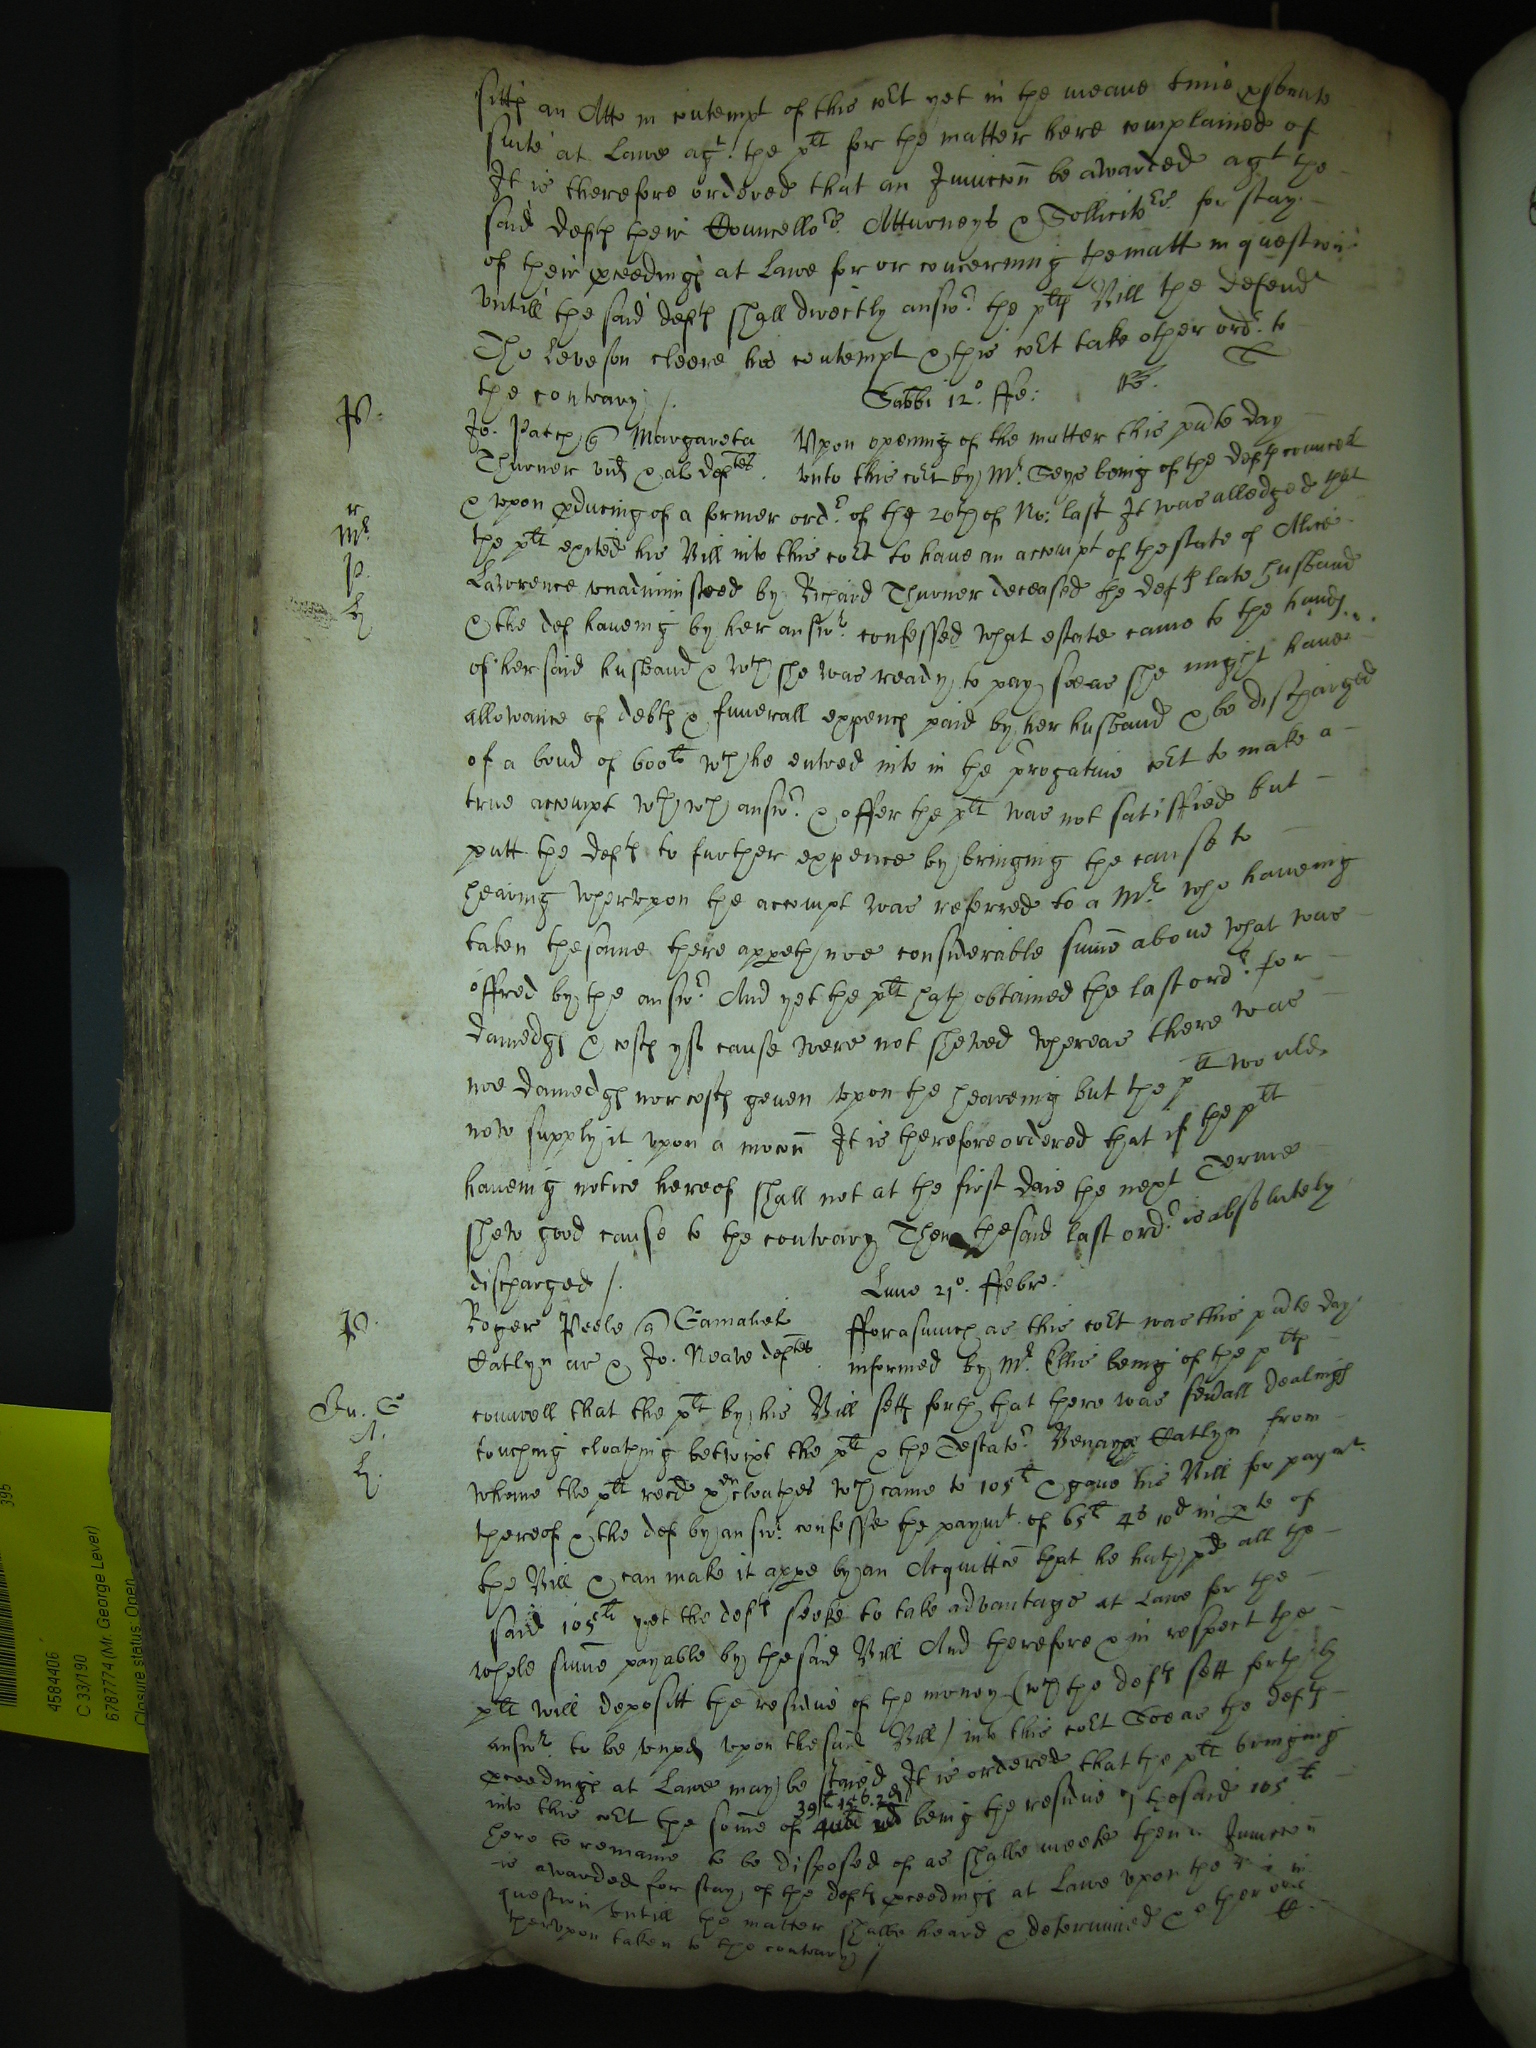 sitth an Atto in contempt of this co:rt yet in the meane time psecute
suite at Lawe agt. the plt for the matter here complained of
It is therefore ordered that an Iniuccon be awarded agt the
said defts their Councello:rs Atturneys & Sollicito:rs for stay
of their pceedings at Lawe for or concerning the matt in question
vntill the said defts shall directly answ:r the plts Bill the defend:t
Tho Leveson cleere his contempt & this co:rt take other ord:r to
the contrary /.
Sabbi 12o. ffe:
P.
Jo. Patch q Margareta
Thurner vid & al deftes.
Vpon opening of the matter this pnte day
vnto this co:rt by Mr. Seys being of the defts councell
& vpon pducing of a former ord:r of the 20th of No: last It was alledged that
r
Mr
the plt exited his Bill into this co:rt to have an accompt of the state of Alice
P.
Lawrence vnadministred by Richard Thurner deceased the defts late husband
H
& the def haueing by her answ:r confessed what estate came to the hands
of her said husband & wch she was ready to pay soe as she might haue
allowance of debts & funerall expencs paid by her husband & be discharged
of a bond of 600li wch he entred into in the progatiue co:rt to make a
true accompt wth wch answ:r & offer the plt was not satisfied but
putt the defts to further expence by bringing the cause to
hearing wherevpon the accompt was referred to a Mr. who haueing
taken the same there appeth noe considerable sume aboue what was
offred by the answ:r And yet the plt hath obtained the last ord:r for
damedgs & costs yf cause were not shewed whereas there was
noe damedgs nor costs geuen vpon the heareing but the plt would
now supply it vpon a mocon It is therefore ordered that if the plt
haueing notice hereof shall not at the first daie the next Terme
shew good cause to the contrary Then the said last ord:r is absolutely
discharged /.
Lune 21o. ffebr:
P.
Roger Peele q Gamaliel
Catlyn ar & Jo. Neave deftes.
fforasmuch as this co:rt was this pnte day
informed by Mr. Ellis being of the plts
councell that the plt by his Bill setts forth that there was seuall dealings
A.
touching cloathing betwixt the plt & the Testato:r Catlyn from
H.
whome the plt recd cloathes wch came to 105li & gaue his Bill for paymt.
thereof & the def by answ:r confesse the paymt. of 65li 4s 10d in pte of
the Bill & can make it appe by an Acquittce that he hath pd all the
said 105li yet the defts seeke to take advantage at Lawe for the
whole sume payable by the said Bill And therefore & in respect the
plt will depositt the residue of the money (wch the defts sett forth by
answ:r to be vnpd vpon the said Bill) into this co:rt Soe as the defts
pceedings at Lawe may be staied It is ordered that the plt bringing
39li 15s. 2d
into this co:rt the some of being the residue of the said 105li
here to remaine to be disposed of as shalbe meete then a Iniuccon
is awarded for stay of the defts pceedings at Lawe vpon the Bill in
question vntill the matter shalbe heard & determined & other ord:r
therevpon taken to the contrary /
395
4584406
C 33/190
6787774 (Mr. George Lever)
Closure status: Open